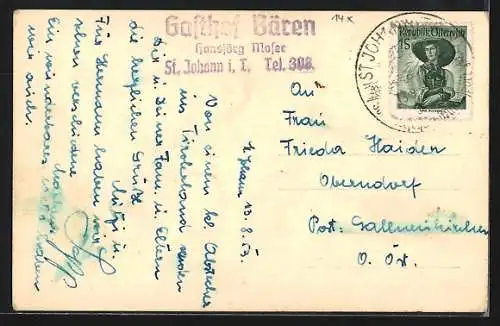 Gasthof Bären
Hansjörg Moser
St. Johann i. T. Tel. 308
14x
ST JOHANN
Republik Österreich
1S
St. Johann 13.8.53.
Von einem kl. Abstecher
ins Tirolerland senden
Dir u. Deiner Fam. u. Eltern
die herzlichen Grüße
Mitzi u.
Für Hermann haben wir
schon verschiedene
Marken
Ein wunderbares Wetter haben
wir auch.
An
Frau
Frieda Haiden
Oberndorf
Post: Gallneukirchen
O. Öst.